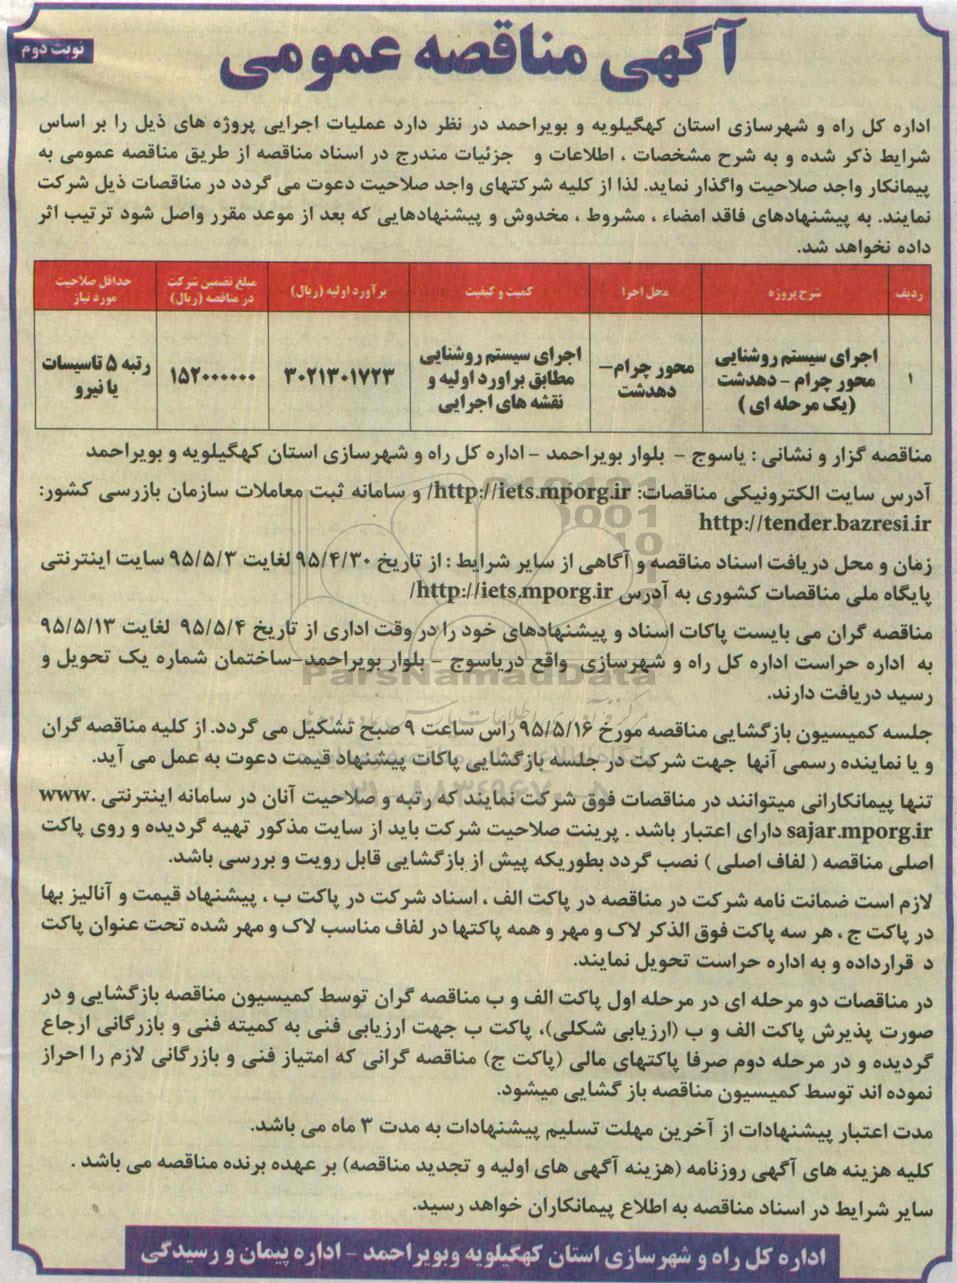 آگهی مناقصه عمومی
نوبت دوم
اداره کل راه و شهرسازی استان کهگیلویه و بویراحمد در نظر دارد عملیات اجرایی پروژه های ذیل را بر اساس
شرایط ذکر شده و به شرح مشخصات ، اطلاعات و جزئیات مندرج در اسناد مناقصه از طریق مناقصه عمومی به
پیمانکار واجد صلاحیت واگذار نماید. لذا از کلیه شرکتهای واجد صلاحیت دعوت می گردد در مناقصات ذیل شرکت
نمایند. به پیشنهادهای فاقد امضاء ، مشروط ، مخدوش و پیشنهادهایی که بعد از موعد مقرر واصل شود ترتیب اثر
داده نخواهد شد.
ردیف
شرح پروژه
محل اجرا
کمیت و کیفیت
برآورد اولیه (ریال)
مبلغ تضمین شرکت
در مناقصه (ریال)
حداقل صلاحیت
مورد نیاز
۱
اجرای سیستم روشنایی
محور چرام - دهدشت
(یک مرحله ای )
محور چرام–
دهدشت
اجرای سیستم روشنایی
مطابق براورد اولیه و
نقشه های اجرایی
۳۰۲۱۳۰۱۷۲۳
۱۵۲۰۰۰۰۰۰
رتبه ۵ تاسیسات
یا نیرو
مناقصه گزار و نشانی : یاسوج - بلوار بویراحمد - اداره کل راه و شهرسازی استان کهگیلویه و بویراحمد
آدرس سایت الکترونیکی مناقصات: http://iets.mporg.ir/ و سامانه ثبت معاملات سازمان بازرسی کشور:
http://tender.bazresi.ir
زمان و محل دریافت اسناد مناقصه و آگاهی از سایر شرایط : از تاریخ ۹۵/۴/۳۰ لغایت ۹۵/۵/۳ سایت اینترنتی
پایگاه ملی مناقصات کشوری به آدرس http://iets.mporg.ir/
مناقصه گران می بایست پاکات اسناد و پیشنهادهای خود را در وقت اداری از تاریخ ۹۵/۵/۴ لغایت ۹۵/۵/۱۳
به اداره حراست اداره کل راه و شهرسازی واقع دریاسوج - بلوار بویراحمد-ساختمان شماره یک تحویل و
ParsNamadData
رسید دریافت دارند.
جلسه کمیسیون بازگشایی مناقصه مورخ ۹۵/۵/۱۶ راس ساعت ۹ صبح تشکیل می گردد. از کلیه مناقصه گران
و یا نماینده رسمی آنها جهت شرکت در جلسه بازگشایی پاکات پیشنهاد قیمت دعوت به عمل می آید.
تنها پیمانکارانی میتوانند در مناقصات فوق شرکت نمایند که رتبه و صلاحیت آنان در سامانه اینترنتی www.
sajar.mporg.ir دارای اعتبار باشد . پرینت صلاحیت شرکت باید از سایت مذکور تهیه گردیده و روی پاکت
اصلی مناقصه ( لفاف اصلی ) نصب گردد بطوریکه پیش از بازگشایی قابل رویت و بررسی باشد.
لازم است ضمانت نامه شرکت در مناقصه در پاکت الف ، اسناد شرکت در پاکت ب ، پیشنهاد قیمت و آنالیز بها
در پاکت ج ، هر سه پاکت فوق الذکر لاک و مهر و همه پاکتها در لفاف مناسب لاک و مهر شده تحت عنوان پاکت
د قرارداده و به اداره حراست تحویل نمایند.
در مناقصات دو مرحله ای در مرحله اول پاکت الف و ب مناقصه گران توسط کمیسیون مناقصه بازگشایی و در
صورت پذیرش پاکت الف و ب (ارزیابی شکلی)، پاکت ب جهت ارزیابی فنی به کمیته فنی و بازرگانی ارجاع
گردیده و در مرحله دوم صرفا پاکتهای مالی (پاکت ج) مناقصه گرانی که امتیاز فنی و بازرگانی لازم را احراز
نموده اند توسط کمیسیون مناقصه باز گشایی میشود.
مدت اعتبار پیشنهادات از آخرین مهلت تسلیم پیشنهادات به مدت ۳ ماه می باشد.
کلیه هزینه های آگهی روزنامه (هزینه آگهی های اولیه و تجدید مناقصه) بر عهده برنده مناقصه می باشد .
سایر شرایط در اسناد مناقصه به اطلاع پیمانکاران خواهد رسید.
اداره کل راه و شهرسازی استان کهگیلویه وبویراحمد - اداره پیمان و رسیدگی